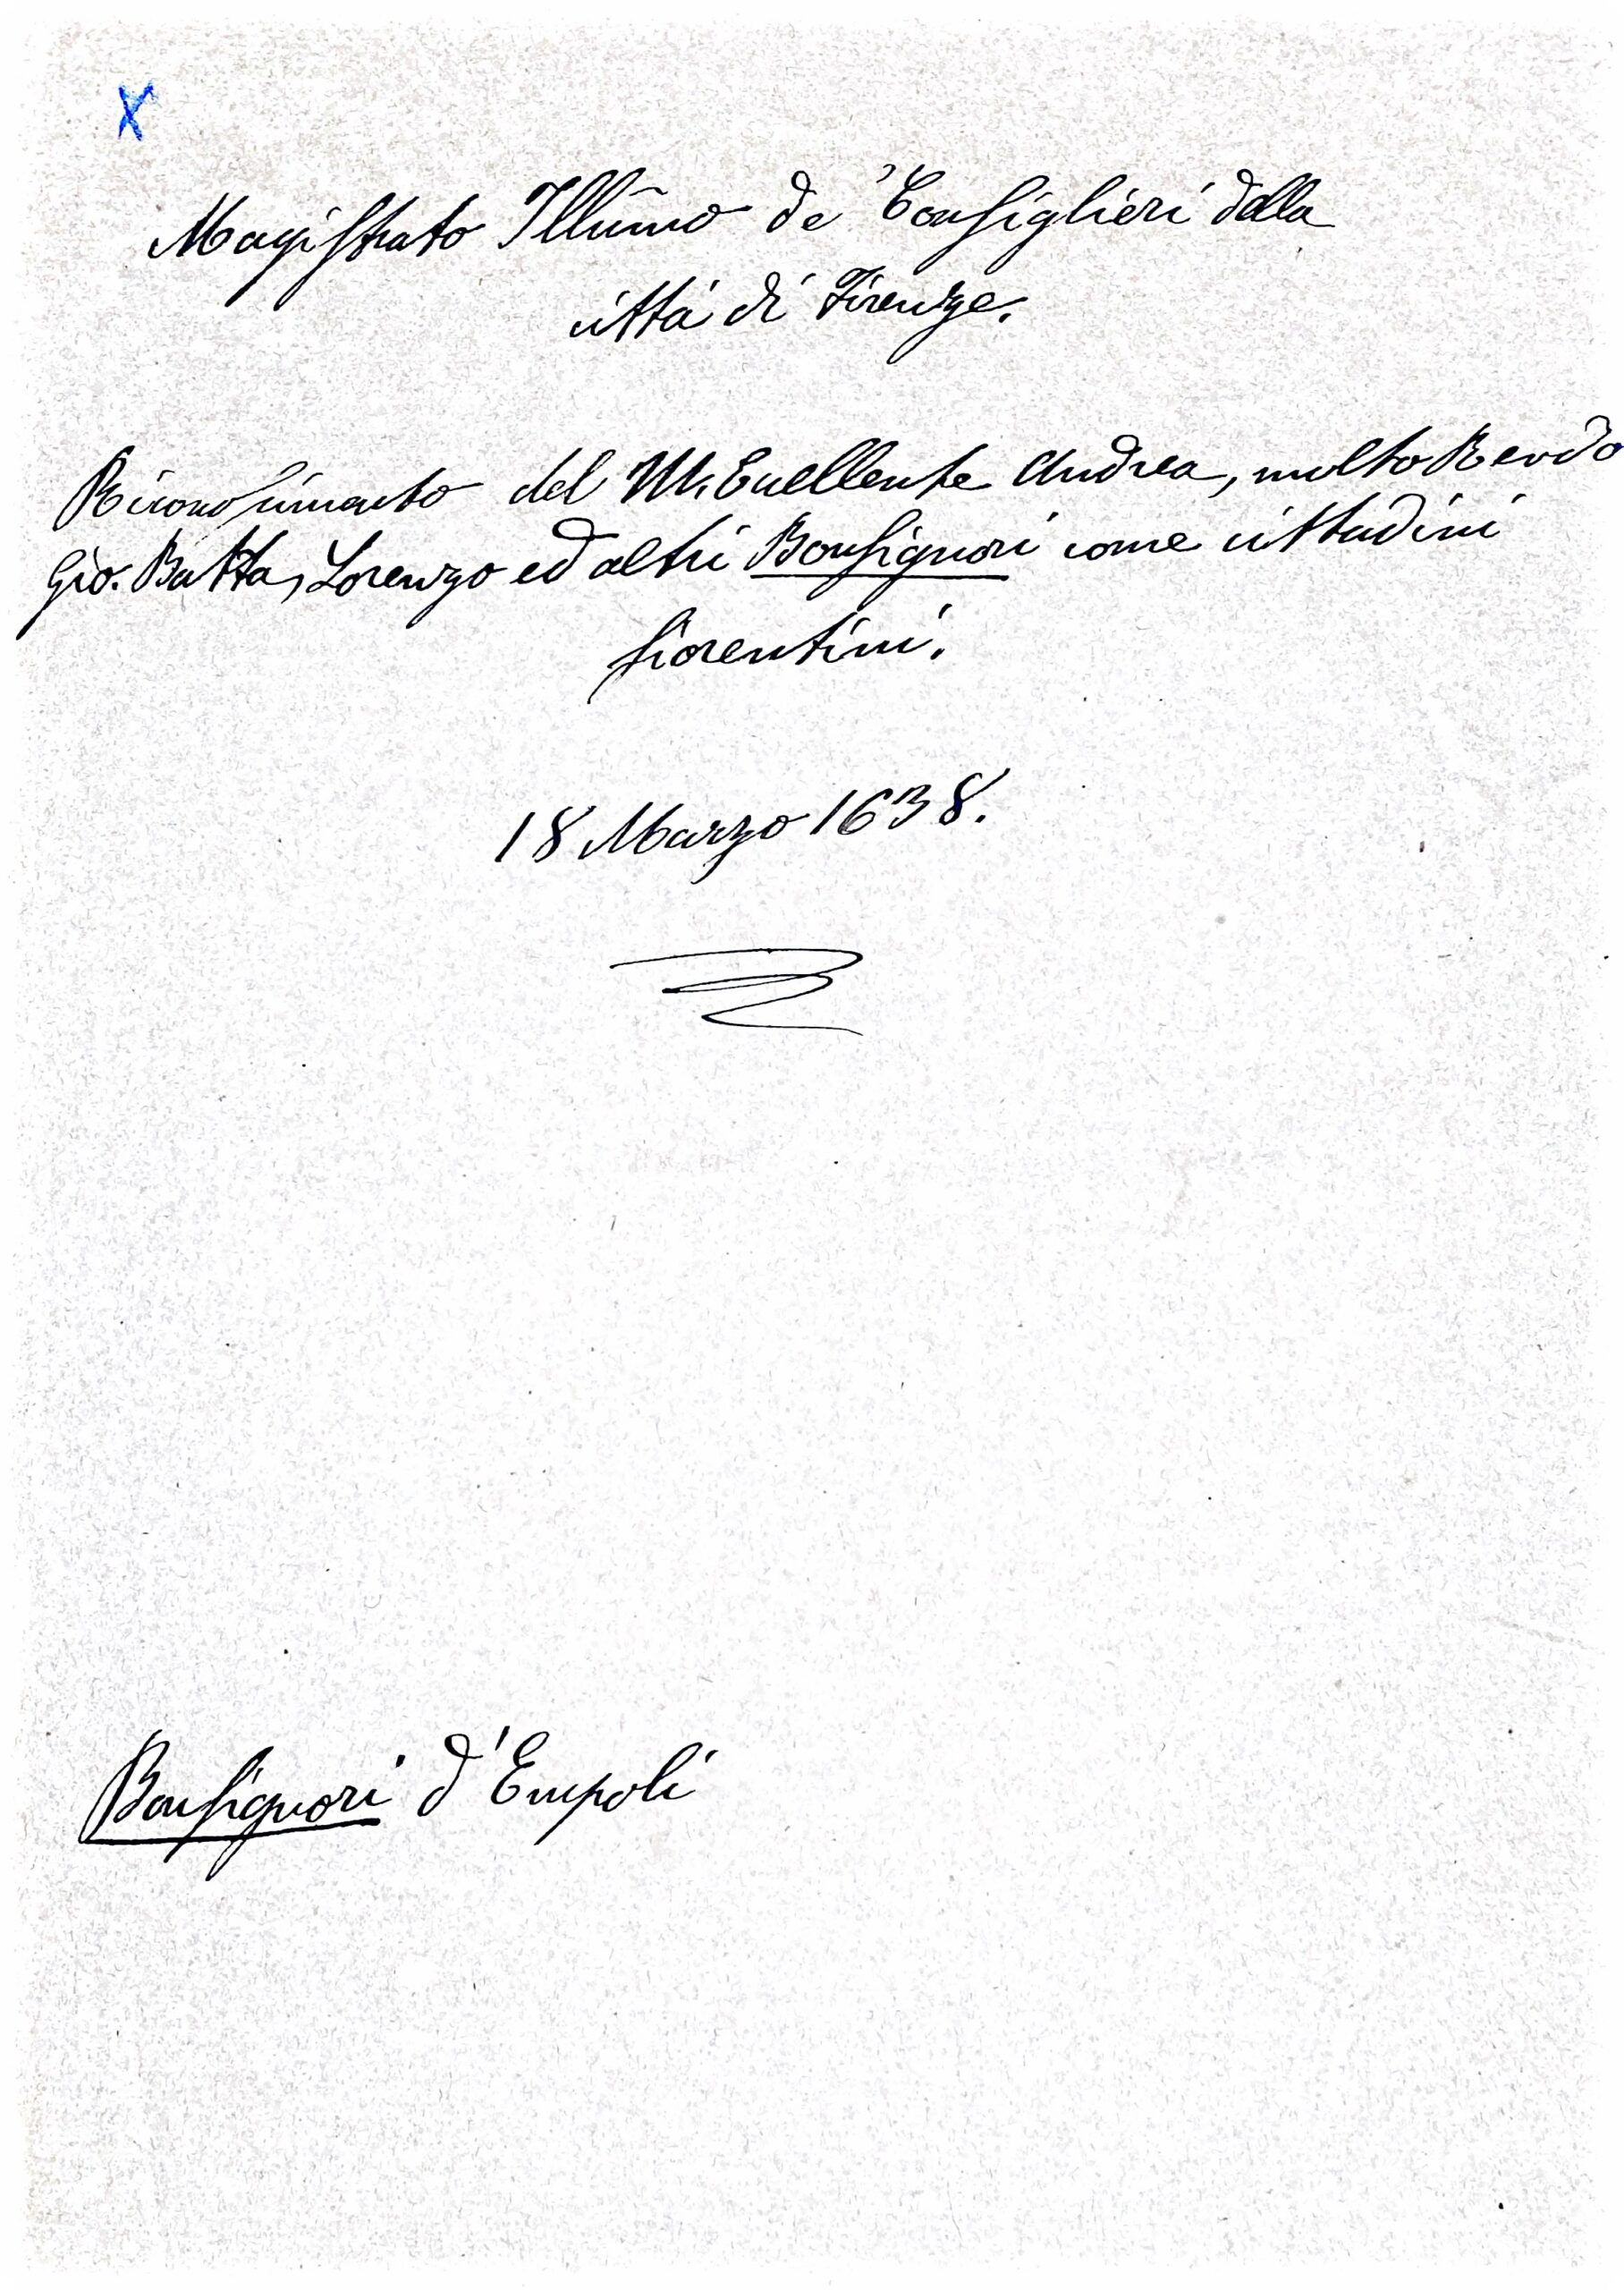 X
Magistrato Illũmo de' Consiglieri della
città di Firenze.
Riconoscimento del M. Eccellente Andrea, molto Revdo
Gio. Batta, Lorenzo ed altri Bonsignori come cittadini
fiorentini.
18 Marzo 1638.
Bonsignori d'Empoli